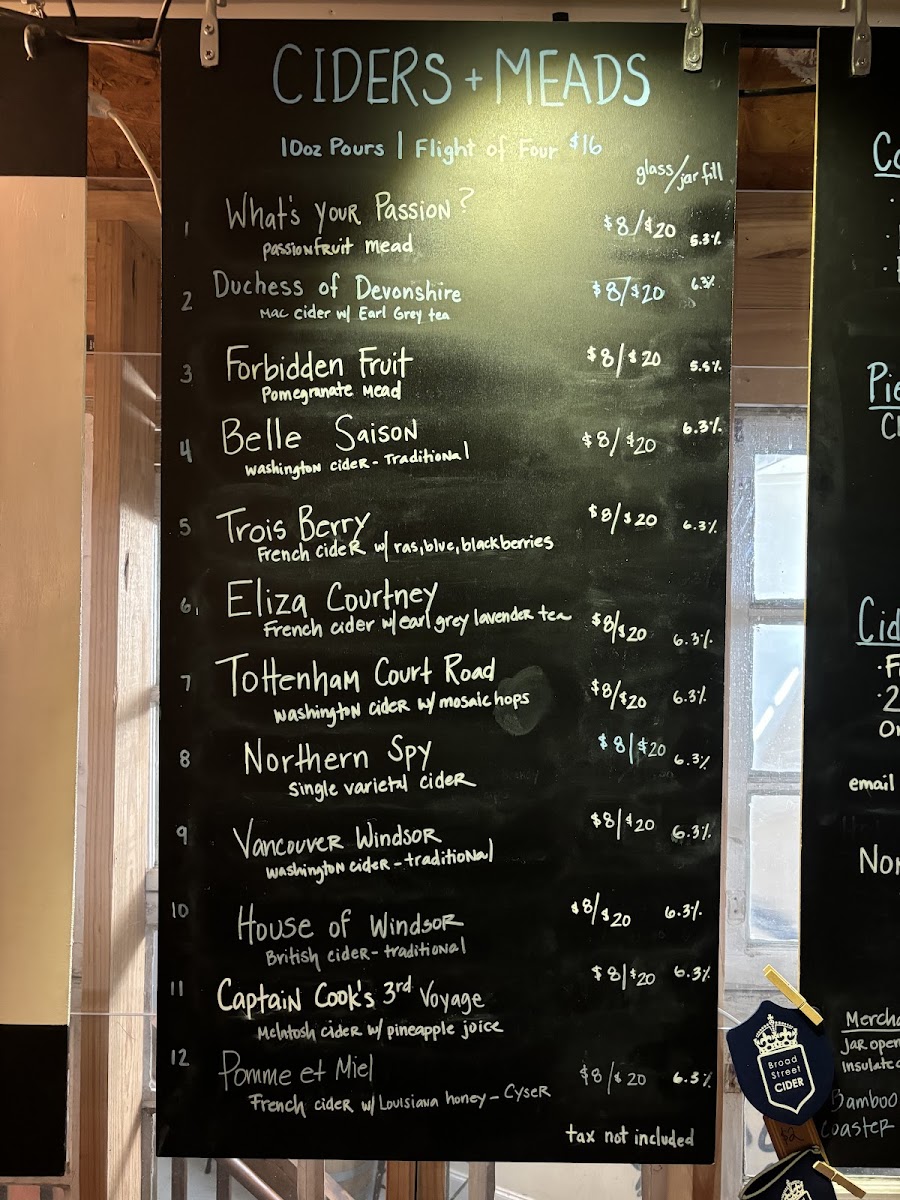 CIDERS + MEADS
10oz Pours | Flight of Four $16
glass/jar fill
1 What's Your Passion? $8/$20 5.3%
passionfruit mead
2 Duchess of Devonshire $8/$20 6.3%
Mac cider w/ Earl Grey tea
3 Forbidden Fruit $8/$20 5.5%
Pomegranate Mead
4 Belle Saison $8/$20 6.3%
Washington cider - Traditional
5 Trois Berry $8/$20 6.3%
French cider w/ ras, blue, blackberries
6. Eliza Courtney $8/$20 6.3%
French cider w/ earl grey lavender tea
7 Tottenham Court Road $8/$20 6.3%
Washington cider w/ mosaic hops
8 Northern Spy $8/$20 6.3%
Single varietal cider
9 Vancouver Windsor $8/$20 6.3%
Washington cider - traditional
10 House of Windsor $8/$20 6.3%
British cider - traditional
11 Captain Cook's 3rd Voyage $8/$20 6.3%
McIntosh cider w/ pineapple joice
12 Pomme et Miel $8/$20 6.3%
French cider w/ Louisiana honey - Cyser
tax not included
email
Jar open
Bamboo
Coaster
Broad
Street
CIDER
$2